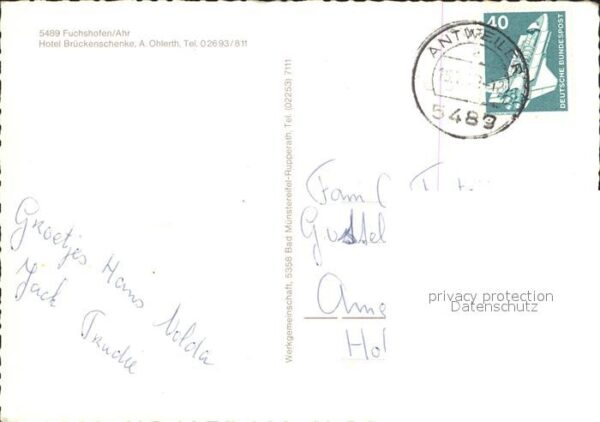 5489 Fuchshofen/Ahr
Hotel Brückenschenke, A. Ohlerth, Tel. 02693/811
40
DEUTSCHE BUNDESPOST
ANTWEILER
5489
Werkgemeinschaft, 5358 Bad Münstereifel-Rupperath, Tel. (02253) 7111
Groetjes Hans Nolda
Jack Trudie
Fam
Gussel
Ame
Hol
privacy protection
Datenschutz